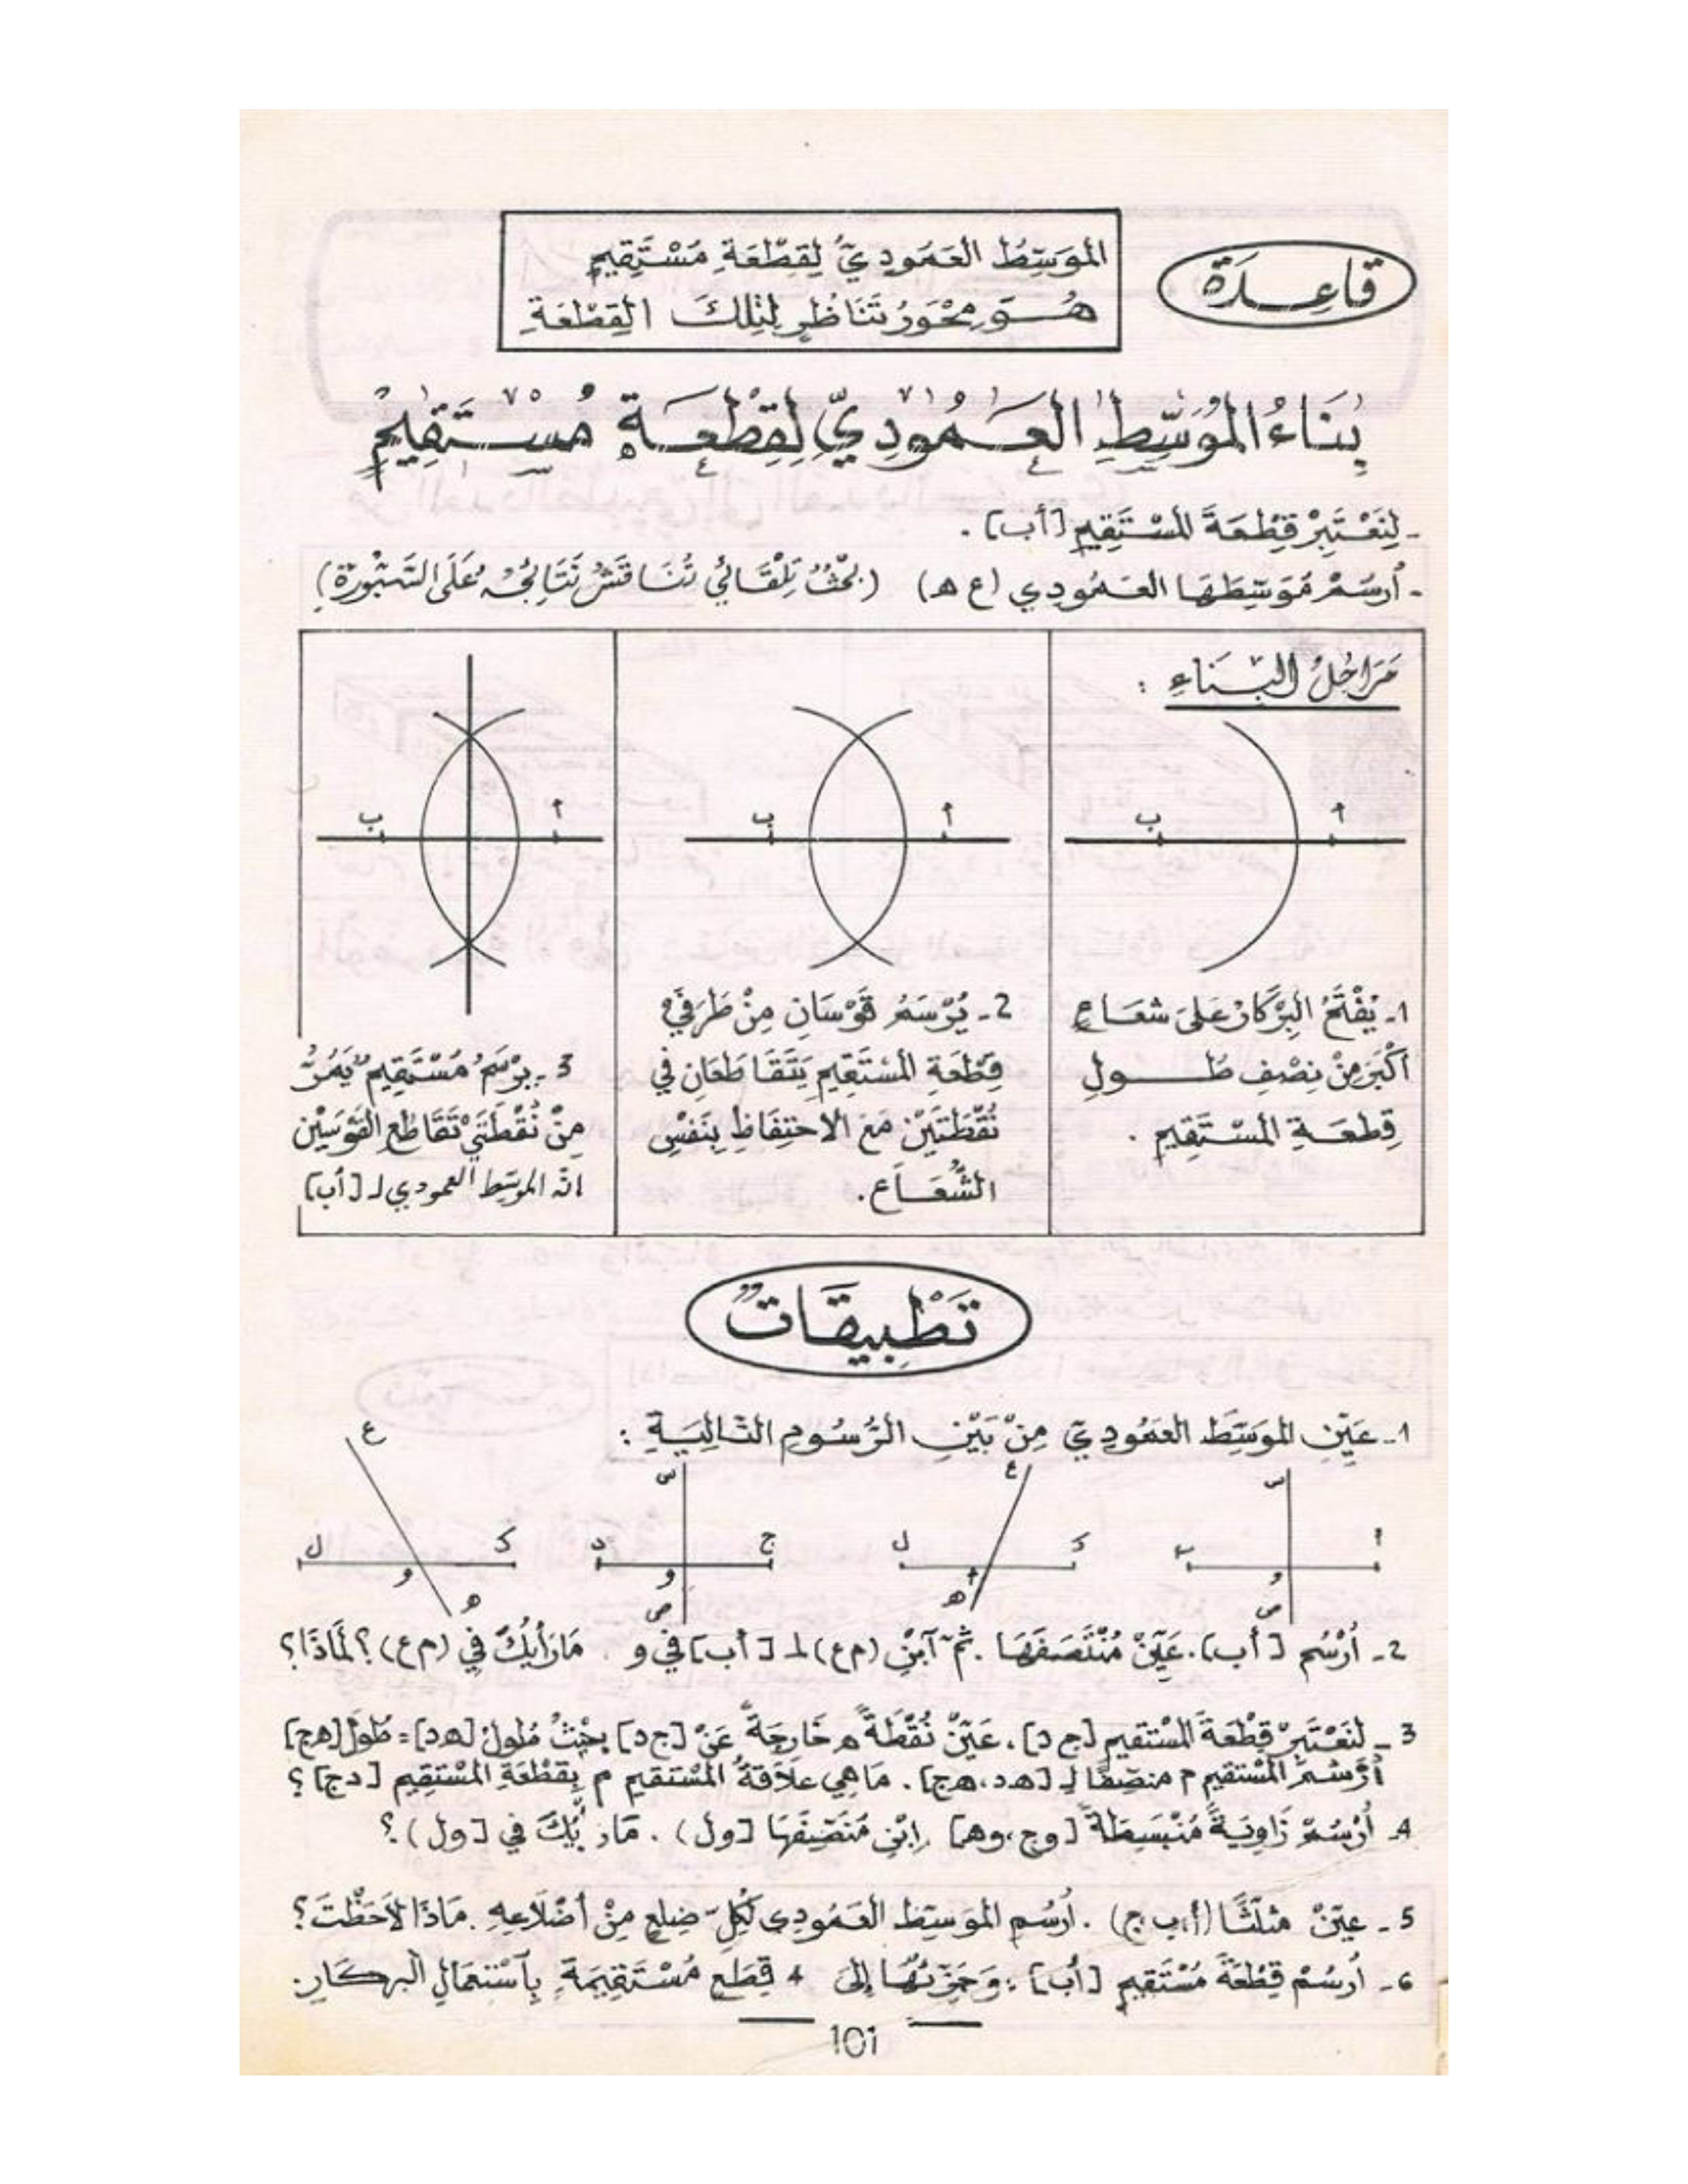 قَاعِدَة
المُوَسِّطُ العَمُودِيُّ لِقِطْعَةِ مُسْتَقِيمٍ
هُوَ مِحْوَرُ تَنَاظُرٍ لِتِلْكَ القِطْعَةِ
بِنَاءُ المُوَسِّطِ العَمُودِيِّ لِقِطْعَةِ مُسْتَقِيمٍ
- لِنَعْتَبِرْ قِطْعَةَ المُسْتَقِيمِ [أب] .
- أُرْسُمْ مُوَسِّطَهَا العَمُودِي (ع ه) (بَحْثٌ تِلْقَائِي تُنَاقَشُ نَتَائِجُهُ عَلَى السَّبُّورَةِ)
مَرَاحِلُ البِنَاءِ :
أ
ب
1- يُفْتَحُ البِرْكَارُ عَلَى شعَاعٍ
أكْبَرَ مِنْ نِصْفِ طُولِ
قِطعَةِ المسْتَقِيمِ .
أ
ب
2- يُرْسَمُ قَوْسَانِ مِنْ طَرَفَيْ
قِطْعَةِ المسْتَقِيمِ يَتَقَاطَعَانِ في
نُقْطَتَيْنِ مَعَ الاحْتِفَاظِ بِنَفْسِ
الشُّعَاع .
أ
ب
3- يرْسَمُ مُسْتَقِيمٌ يَمُرُّ
مِنْ نُقْطَتَيْ تَقَاطُعِ القَوْسَيْنِ
انّه الموسّط العمودي لـ [أب]
تَطْبِيقَاتٌ
1- عَيِّنِ المُوَسِّطَ العَمُودِيَّ مِنْ بَيْنِ الرُّسُومِ التَّالِيَةِ :
س أ و ص
ع ك ل ه
س ج د و ص
ع ك ل و ه
2- أُرْسُم [أب] . عَيِّنْ مُنْتَصَفَهَا . ثُمّ آبْنِ (م ع) ⊥ [أب] في و . مَا رَأْيُكَ في (م ع) ؟ لمَاذَا ؟
3 - لِنَعْتَبِرْ قِطْعَةَ المُسْتقيمِ [ج د] . عَيِّنْ نُقْطَةً ه خَارِجَةً عَنْ [ج د] بِحَيْثُ طُولُ [ه د] = طُولَ [ه ج]
أُرْسُمْ المُسْتقيمَ م منصِّفًا لِـ [ه د ، ه ج] . مَا هِي عَلاَقَةُ المُسْتقيمِ م بِقِطْعَةِ المُسْتقِيمِ [د ج] ؟
4- أُرْسُمْ زَاوِيَةً مُنْبَسِطَةً [وج ، وه] اِبْنِ مُنَصِّفَهَا [ول) . مَا رَأْيُكَ في [ول) ؟
5 - عيّنْ مثلّثًا (أ ، ب ، ج) . اُرسُمِ الموَسِّطَ العَمُودِي لِكُلِّ ضِلعٍ مِنْ أضْلاَعِهِ . مَاذَا لاَحَظْتَ ؟
6- اُرسُمْ قِطْعَةَ مُسْتَقِيمٍ [أب] ، وَجَزِّئْهَا إلَى 4 قِطَعِ مُسْتَقِيمَةٍ بِآسْتِعْمَالِ البركَارِ .
101